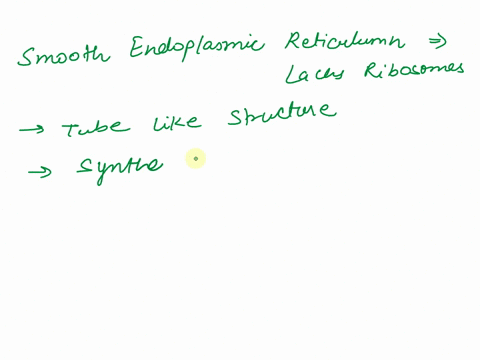 Smooth Endoplasmic Reticulumn ⇒
Lacks Ribosomes
→ Tube like Structure
→ Synthe